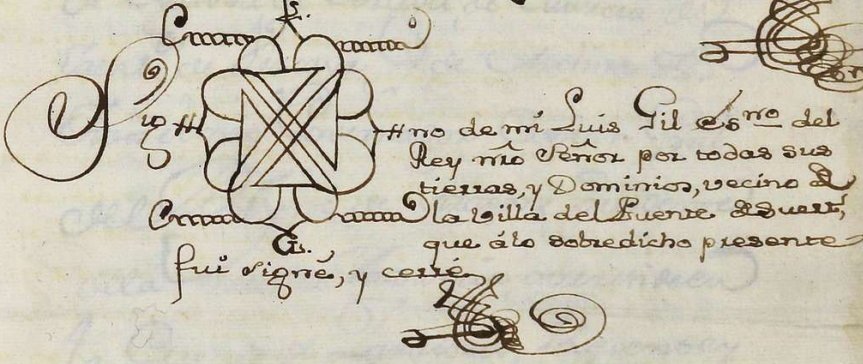 L.
Sig # # no de mi Luis Gil Es.no del
Rey nro Señor por todas sus
tierras, y Dominios, vecino de
la Villa del Puente
que álo sobredicho presente
G.
fui signé, y cerré